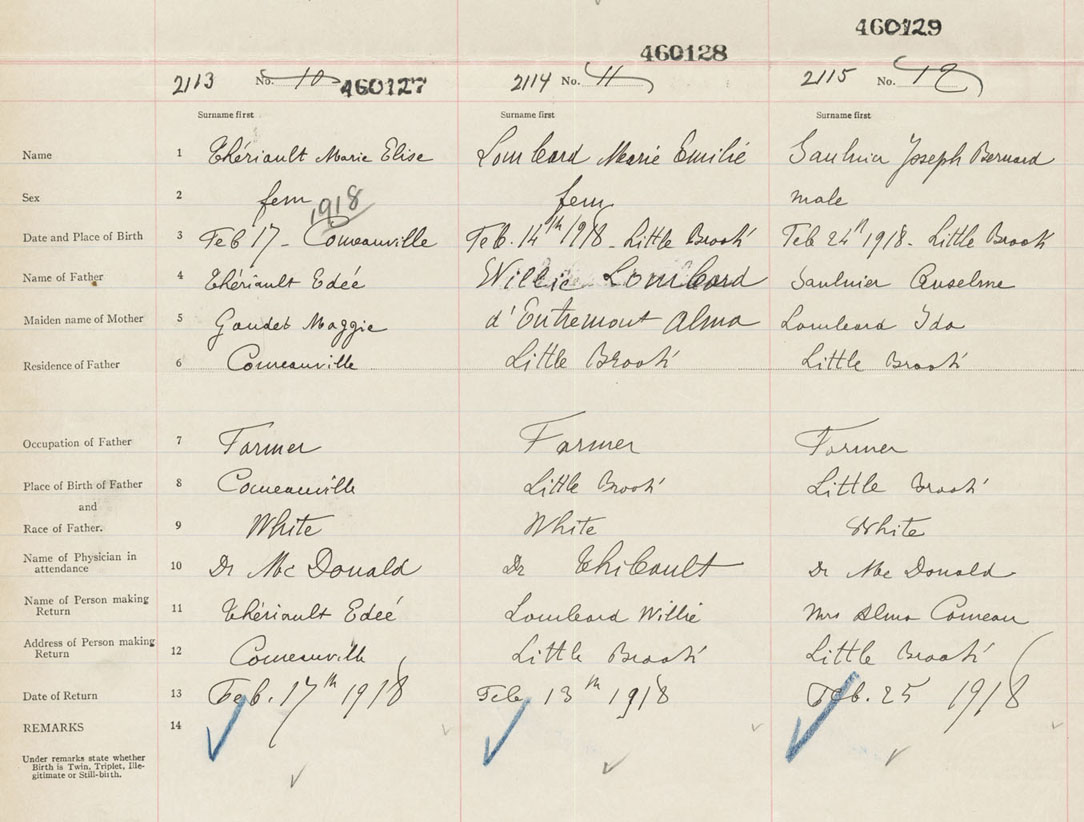 460129
460128
2113 No. 10 460127 2114 No. 11 2115 No. 12
Surname first Surname first Surname first
Name 1 Thériault Marie Elise Lombard Marie Emilié Saulnier Joseph Bernard
Sex 2 fem fem male
1918
Date and Place of Birth 3 Feb 17 - Comeauville Feb. 14th 1918 - Little Brook Feb 24th 1918 - Little Brook
Name of Father 4 Thériault Edéé Willie Lombard Saulnier Anselme
Maiden name of Mother 5 Gaudet Maggie d'Entremont Alma Lombard Ida
Residence of Father 6 Comeauville Little Brook Little Brook
Occupation of Father 7 Farmer Farmer Farmer
Place of Birth of Father 8 Comeauville Little Brook Little Brook
and
Race of Father. 9 White White White
Name of Physician in
attendance 10 Dr McDonald Dr Thibault Dr McDonald
Name of Person making
Return 11 Thériault Edéé Lombard Willie Mrs Alma Comeau
Address of Person making
Return 12 Comeauville Little Brook Little Brook
Date of Return 13 Feb. 17th 1918 Feb 13th 1918 Feb. 25 1918
REMARKS 14
Under remarks state whether
Birth is Twin, Triplet, Ille-
gitimate or Still-birth.